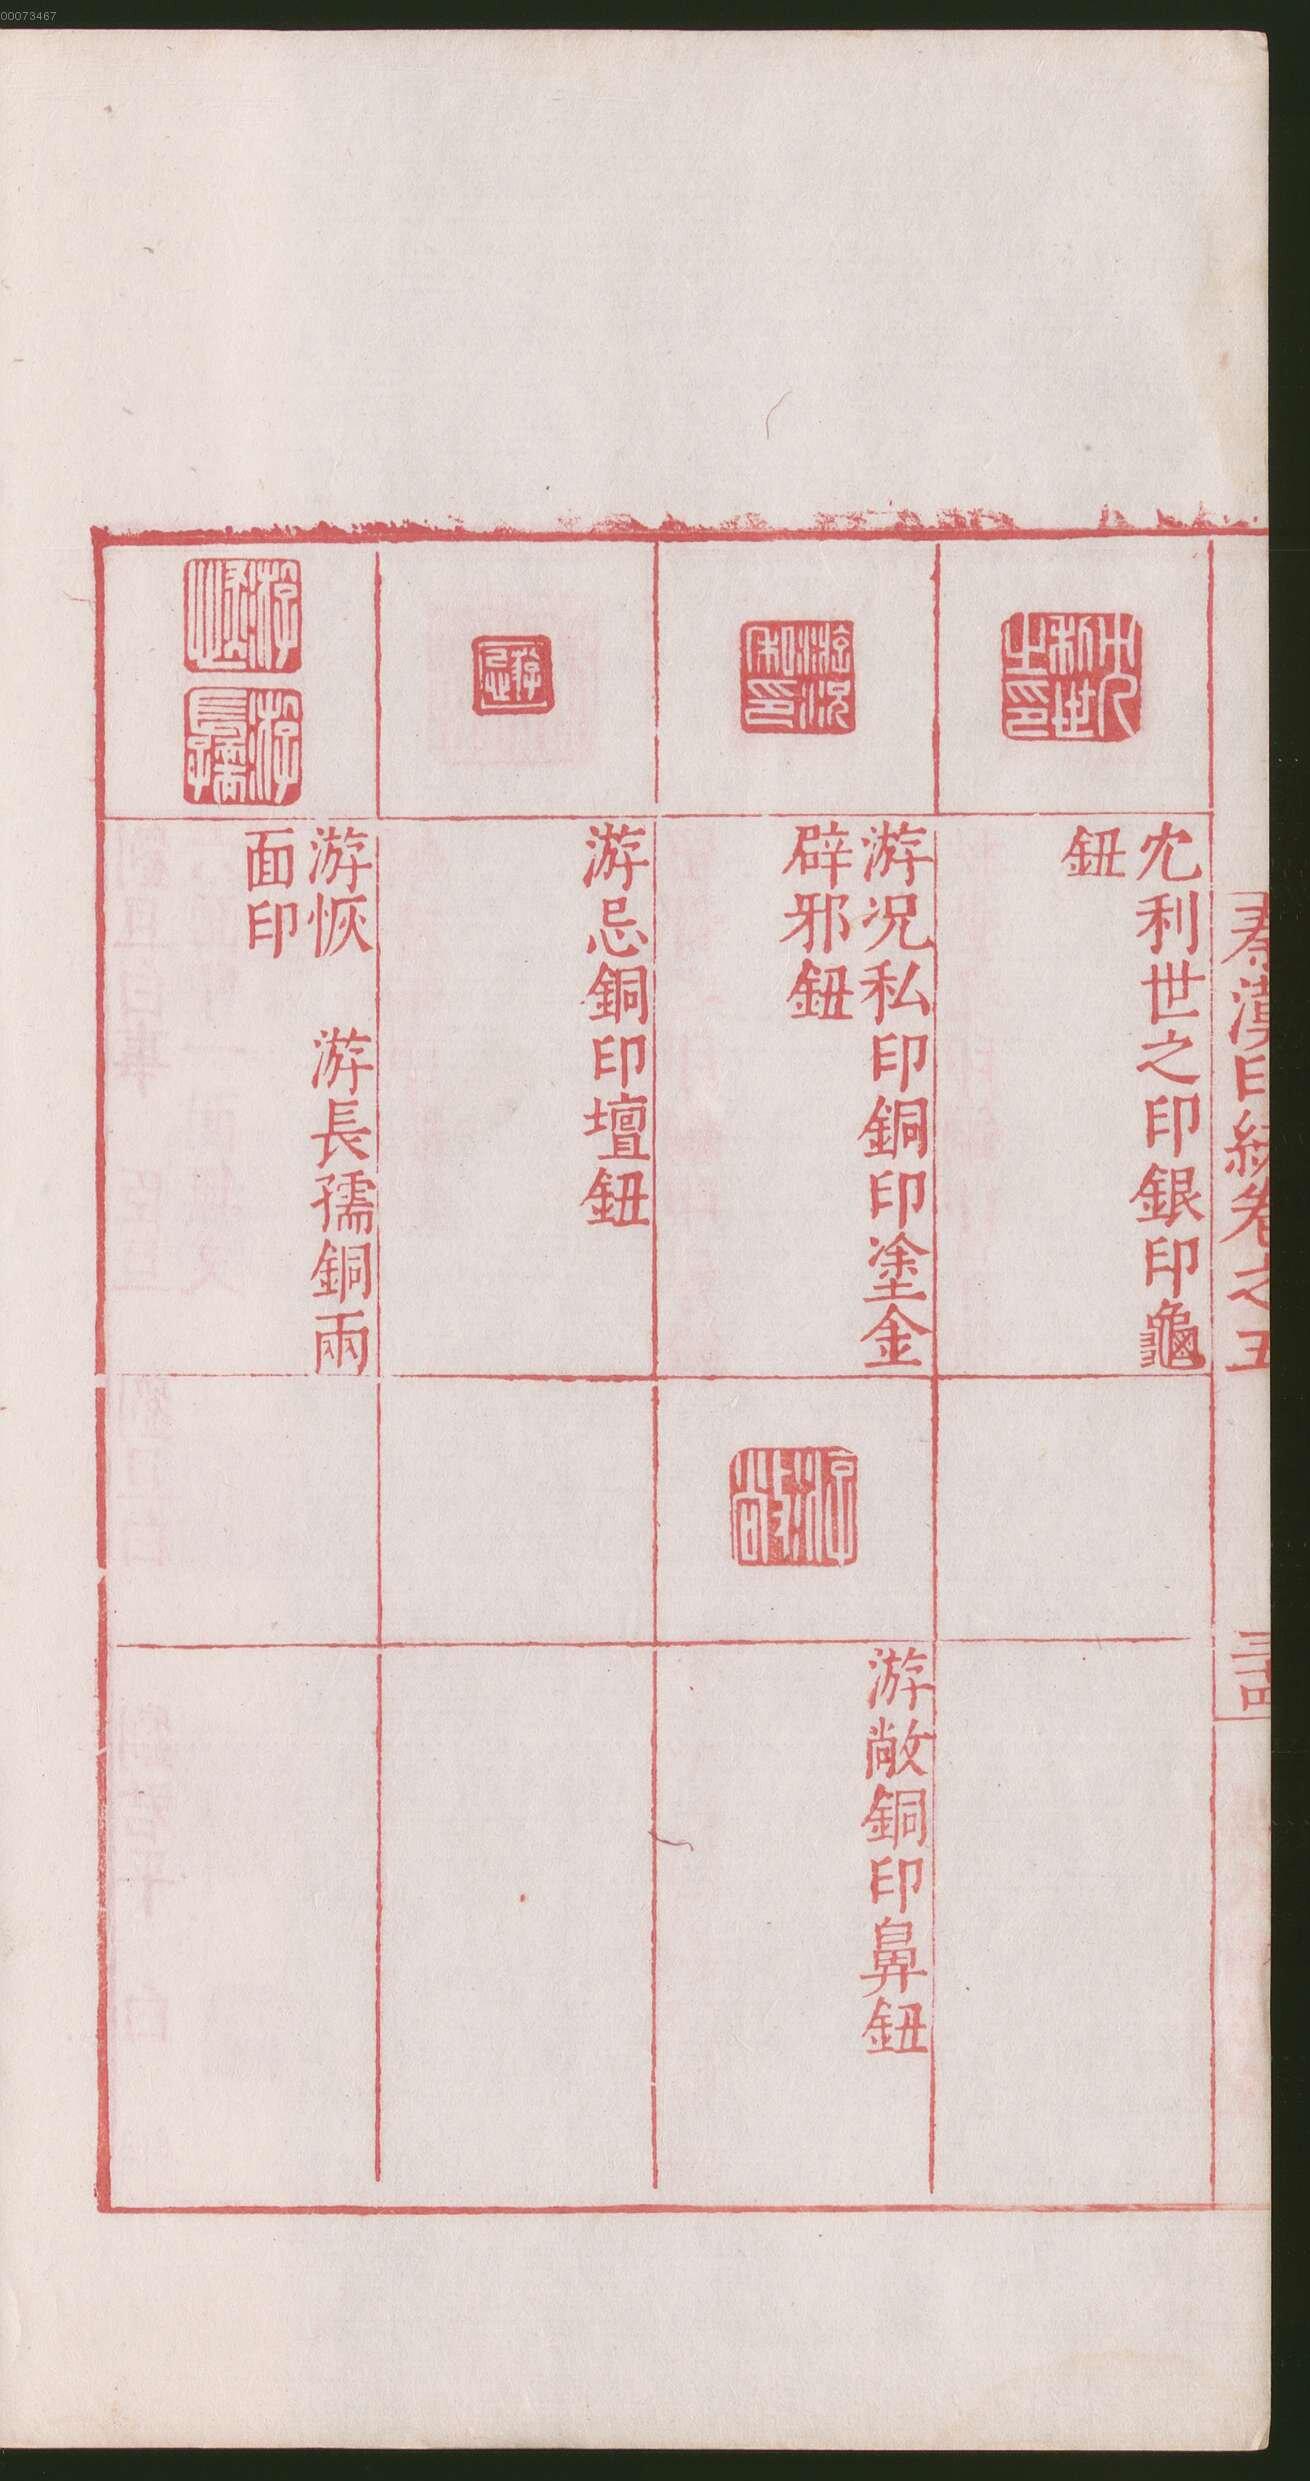 00073467
秦漢印統卷之五
三十四
冘利世之印銀印龜
鈕
游況私印銅印塗金
辟邪鈕
游敞銅印鼻鈕
游忌銅印壇鈕
游恢　游長孺銅兩
面印